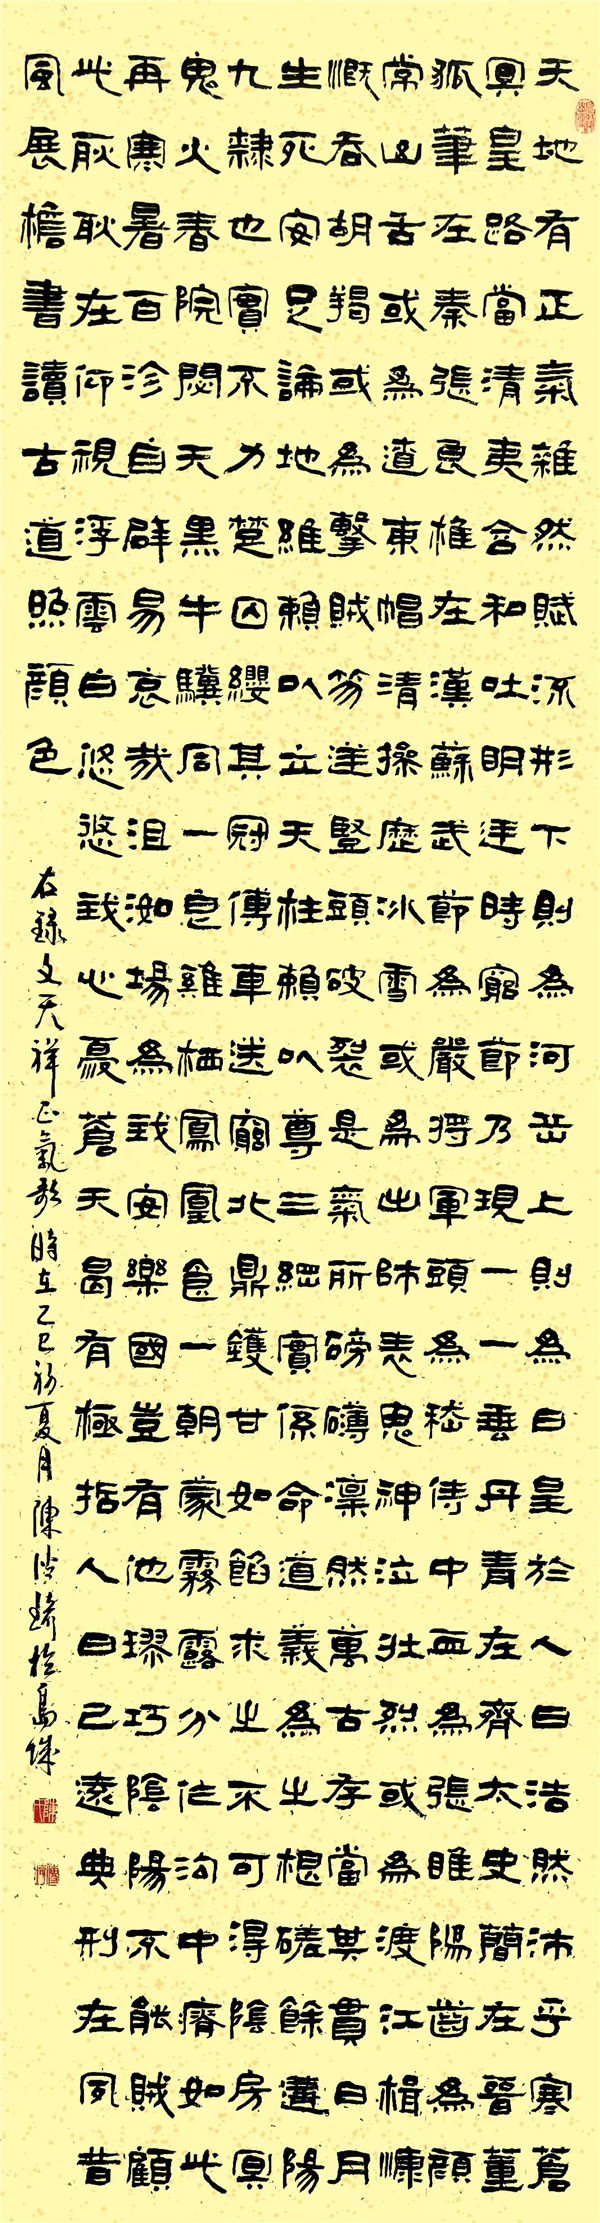 天地有正氣雜然賦流形下則為河岳上則為日星於人曰浩然沛乎塞蒼
冥皇路當清夷含和吐明廷時窮節乃現一一垂丹青在齊太史簡在晉董
狐筆在秦張良椎在漢蘇武節為嚴將軍頭為嵇侍中血為張睢陽齒為顏
常山舌或為遼東帽清操歷冰雪或為出師表鬼神泣壯烈或為渡江楫慷
慨吞胡羯或為擊賊笏逆豎頭破裂是氣所磅礴凜然萬古存當其貫日月
生死安足論地維賴以立天柱賴以尊三綱實係命道義為之根磋餘遘陽
九隸也實不力楚囚纓其冠傳車送窮北鼎鑊甘如飴求之不可得陰房冥
鬼火春院閟天黑牛驥同一皂雞栖鳳凰食一朝蒙霧露分作溝中瘠如此
再寒暑百沴自辟易哀哉沮洳場為我安樂國豈有他璆巧陰陽不能賊顧
此耿耿在仰視浮雲白悠悠我心憂蒼天曷有極指人日已遠典刑在夙昔
風展檐書讀古道照顏色
右錄文天祥正氣歌時在乙巳初夏月陳於島城